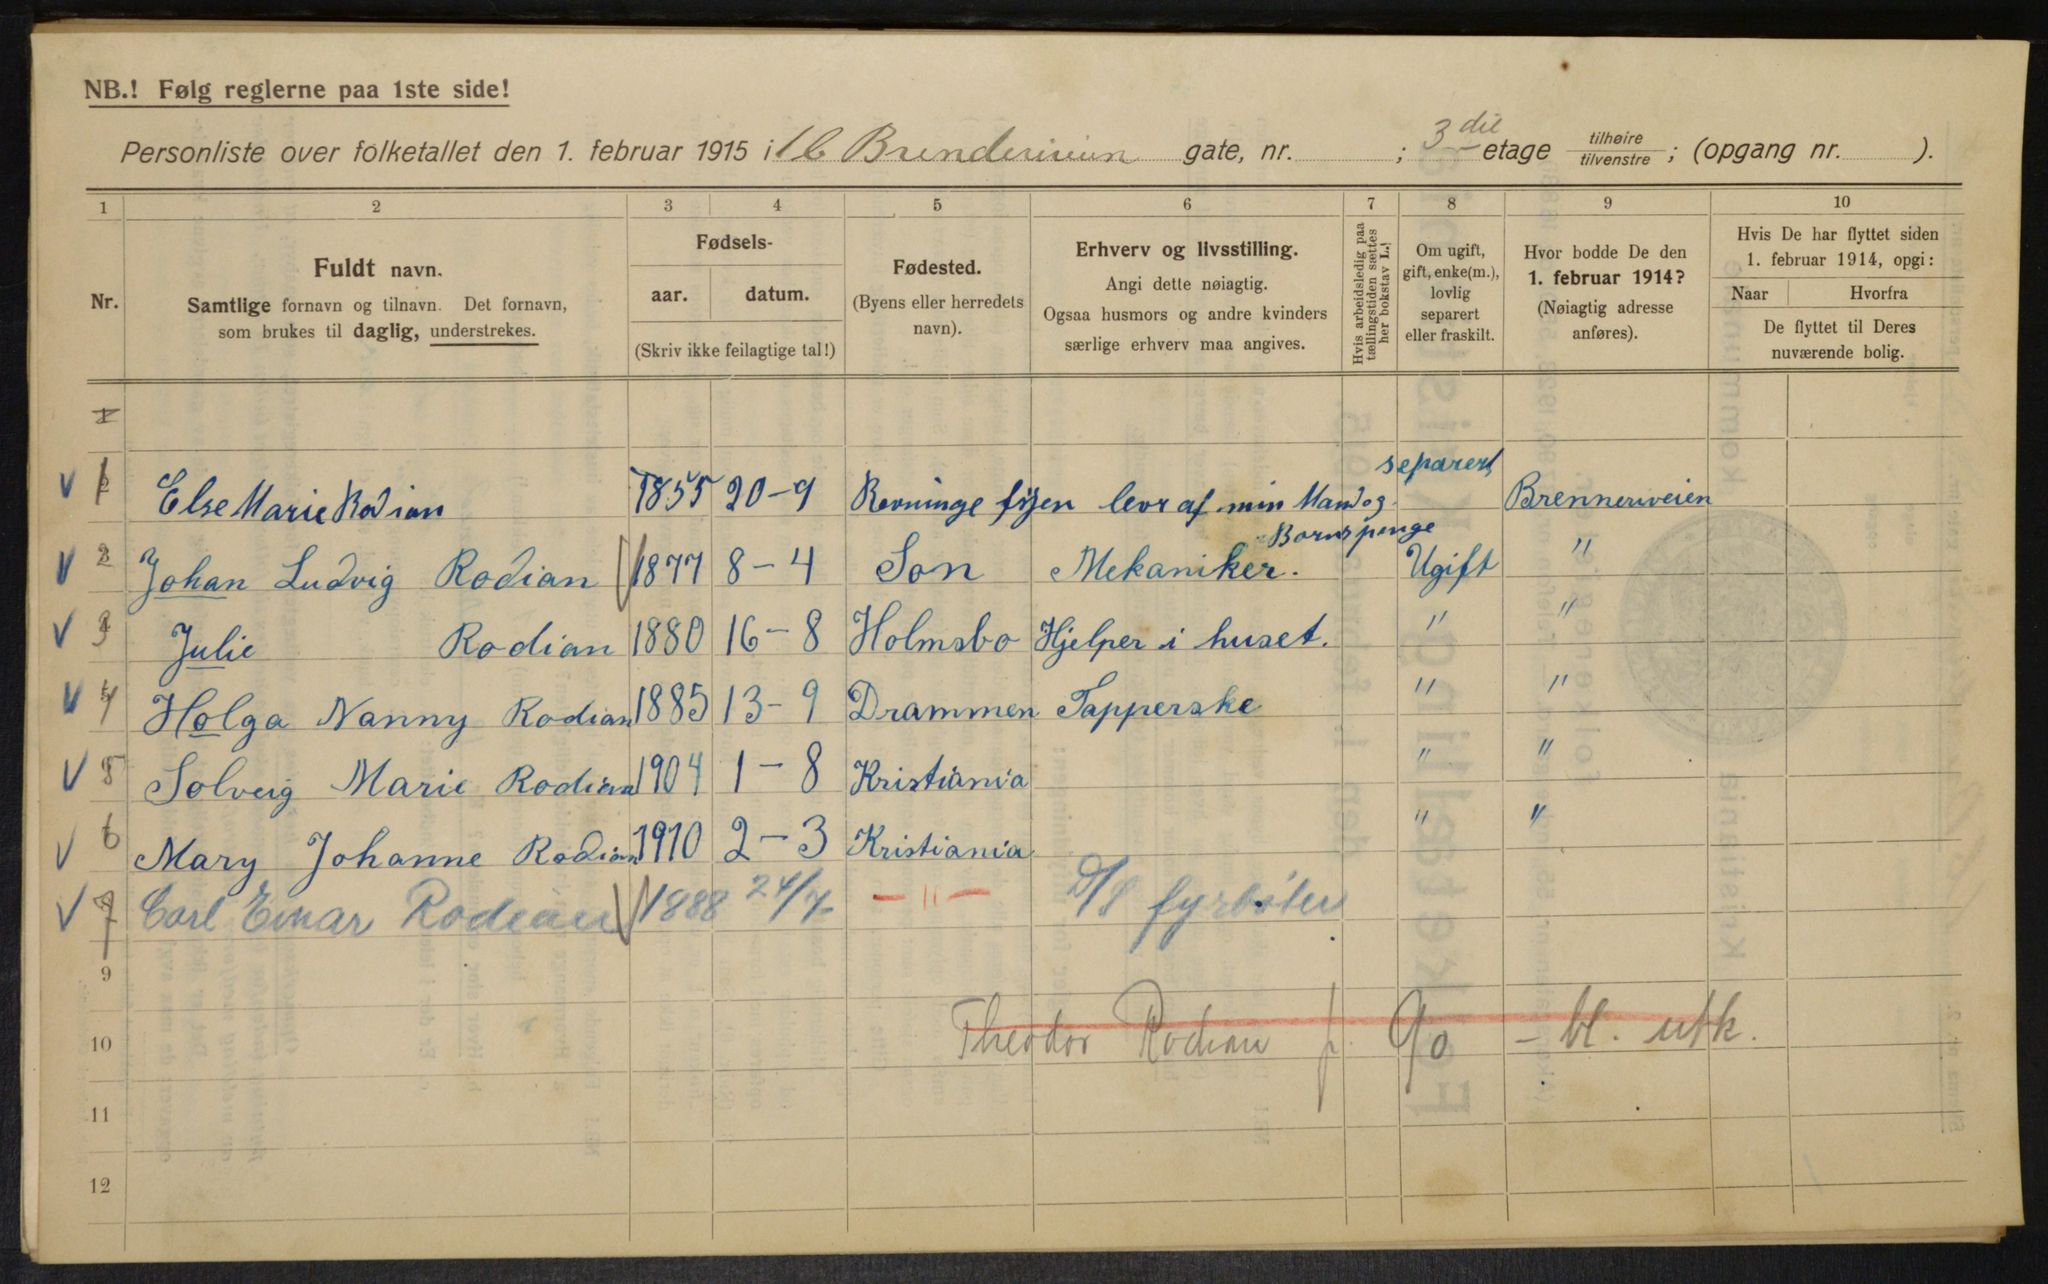 NB.! Følg reglerne paa 1ste side!
Personliste over folketallet den 1. februar 1915 i 16 Brenderiveien gate, nr. ; 3 die etage tilhøire tilvenstre ; (opgang nr. ).
1 2 3 4 5 6 7 8 9 10
Nr.
Fuldt navn.
Samtlige fornavn og tilnavn. Det fornavn,
som brukes til daglig, understrekes.
Fødsels-
aar. datum.
(Skriv ikke feilagtige tal!)
Fødested.
(Byens eller herredets
navn).
Erhverv og livsstilling.
Angi dette nøiagtig.
Ogsaa husmors og andre kvinders
særlige erhverv maa angives.
Hvis arbeidsledig paa
tællingstiden sættes
her bokstav L.!
Om ugift,
gift, enke(m.),
lovlig
separert
eller fraskilt.
Hvor bodde De den
1. februar 1914?
(Nøiagtig adresse
anføres).
Hvis De har flyttet siden
1. februar 1914, opgi:
Naar Hvorfra
De flyttet til Deres
nuværende bolig.
1 Else Marie Rodian 1855 20-9 Revninge fyen levr af min Mand og Bornspenge separert Brenneriveien
2 Johan Ludvig Rodian 1877 8-4 Son Mekaniker. Ugift "
3 Julie Rodian 1880 16-8 Holmsbo Hjelper i huset. " "
4 Holga Nanny Rodian 1885 13-9 Drammen Tapperske " "
5 Solveig Marie Rodian 1904 1-8 Kristiania " "
6 Mary Johanne Rodian 1910 2-3 Kristiania " "
7 Carl Einar Rodian 1888 24/7 -"- D/S fyrbøter
9
10 Theodor Rodian f. 90 - bl. utk.
11
12